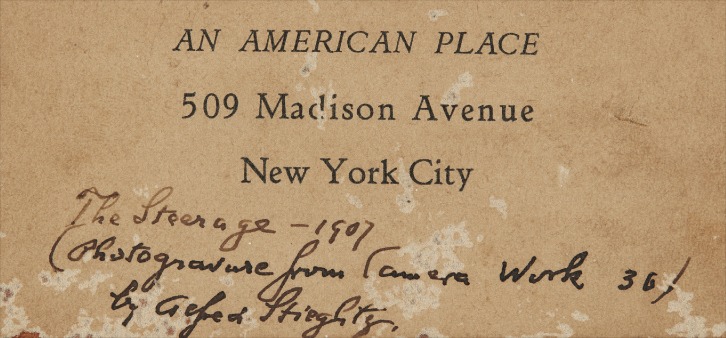 AN AMERICAN PLACE
509 Madison Avenue
New York City
The Steerage - 1907
(Photogravure from Camera Work 36)
by Alfred Stieglitz.